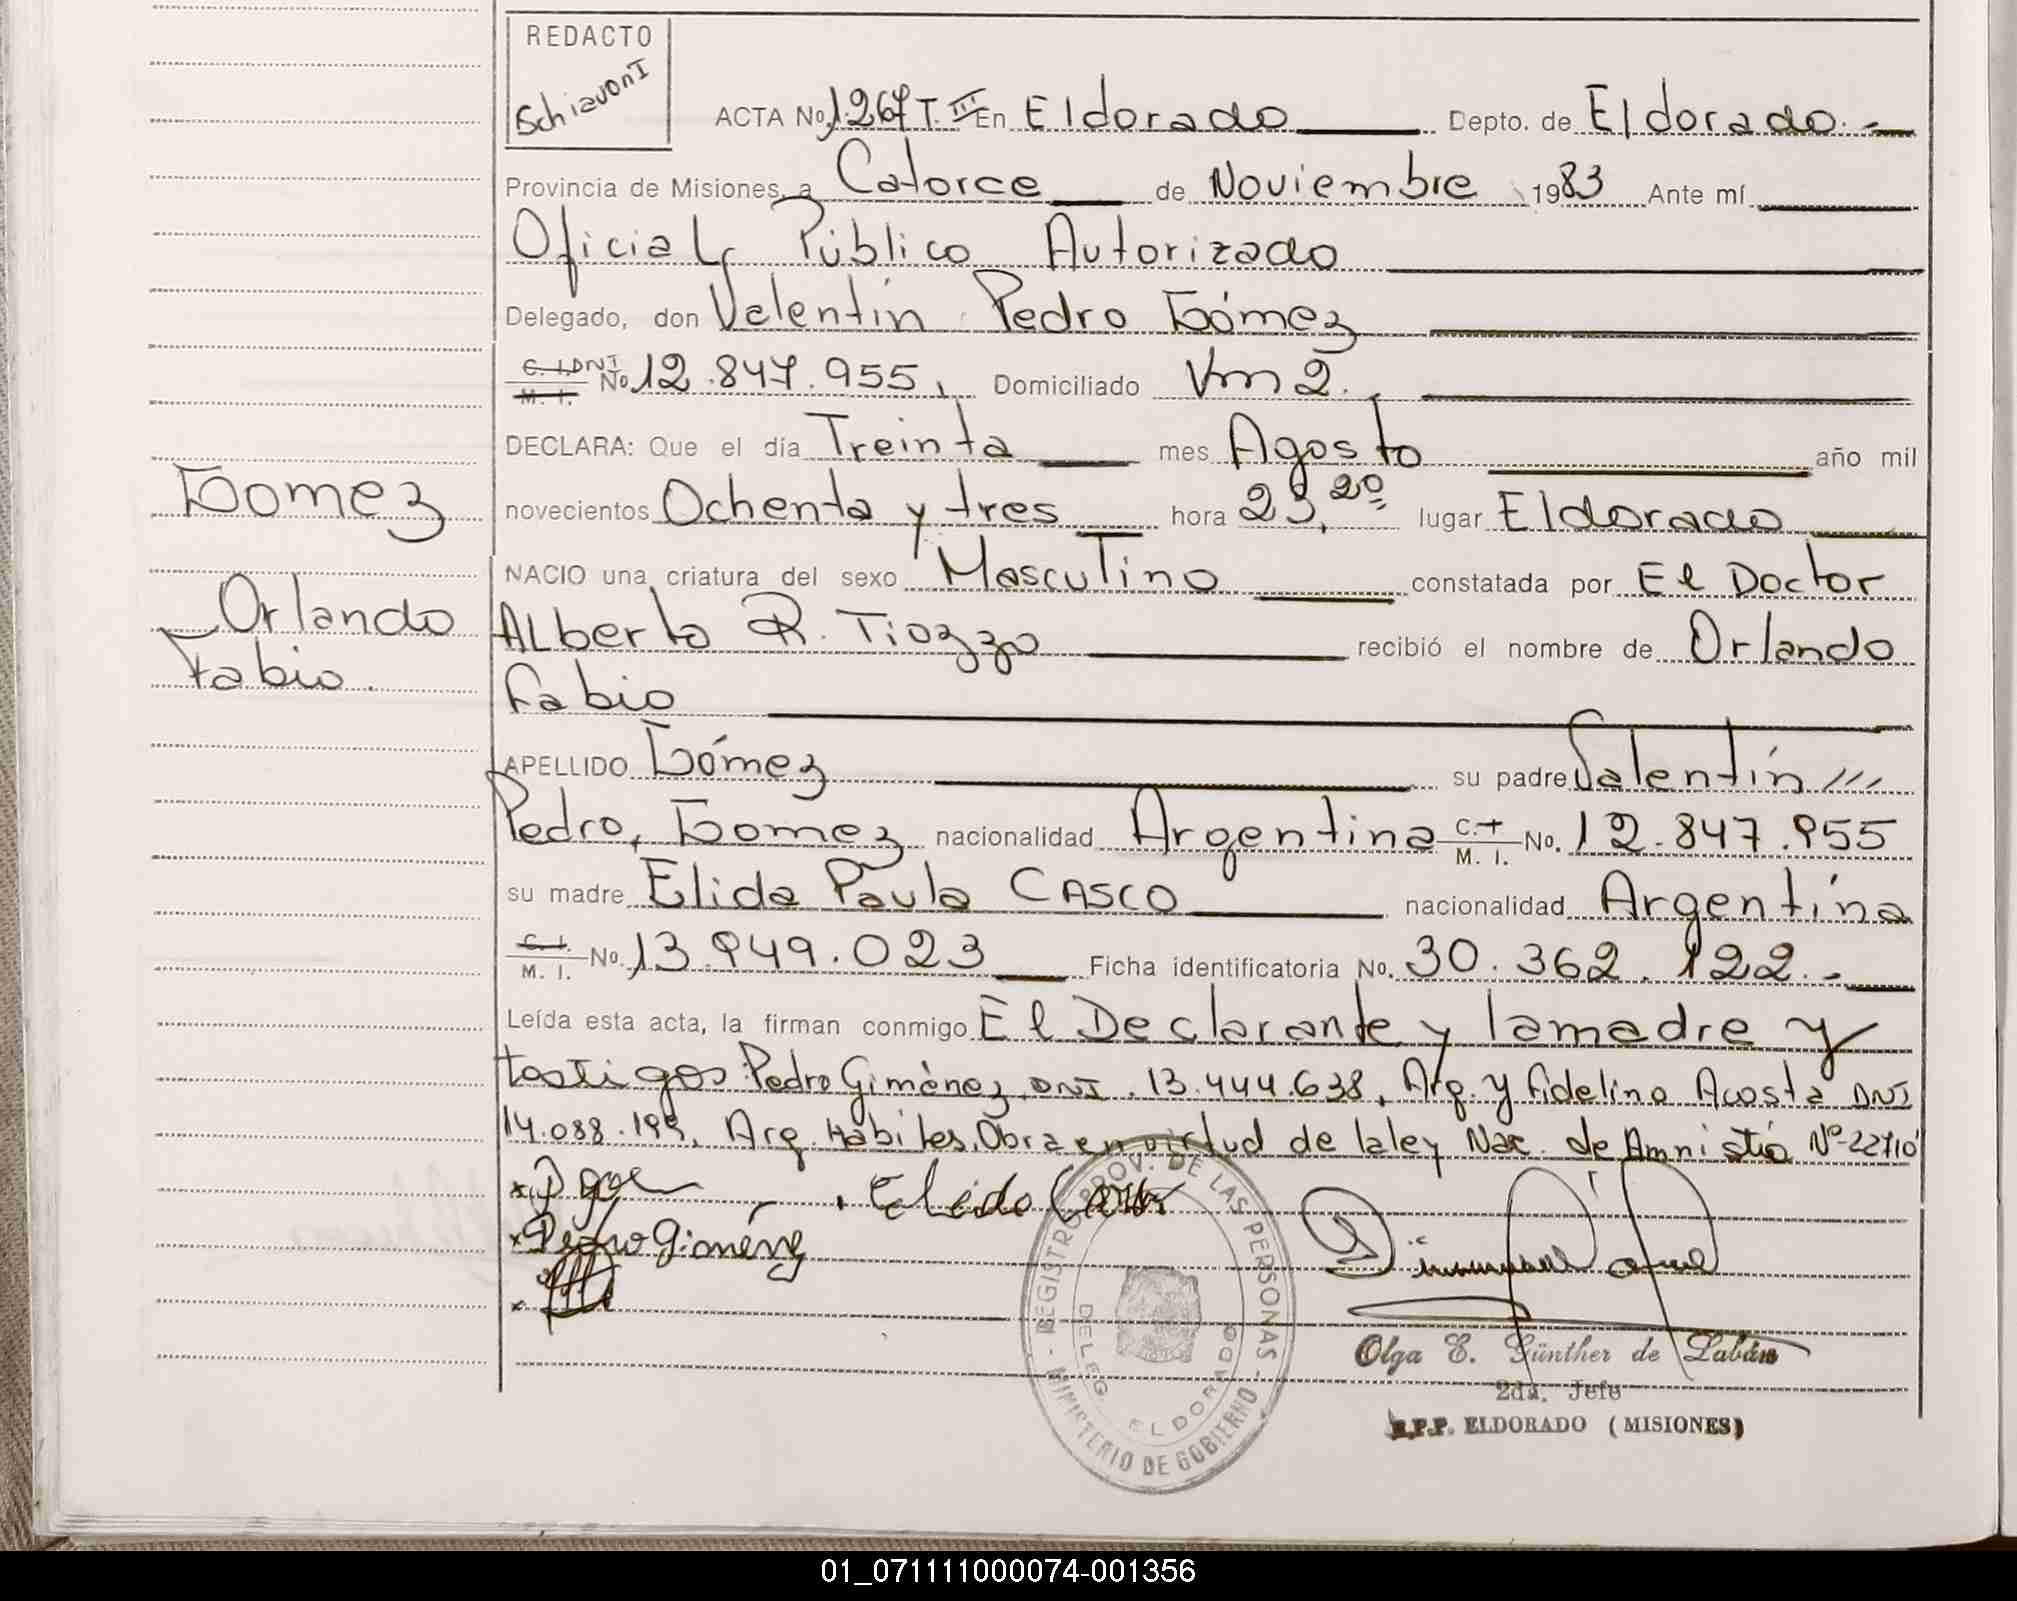 REDACTO
Schiavoni
ACTA No. 1.267 T. III En Eldorado Depto. de Eldorado.-
Provincia de Misiones, a Catorce de Noviembre 1983 Ante mí
Oficial Público Autorizado
Delegado, don Valentín Pedro Gómez
C. I. DNI M. I. No. 12.847.955, Domiciliado Km 2.
DECLARA: Que el día Treinta mes Agosto año mil
novecientos Ochenta y tres hora 23,20 lugar Eldorado
Gomez
NACIO una criatura del sexo Masculino constatada por El Doctor
Orlando
Alberto R. Tiozzo recibió el nombre de Orlando
Fabio.
Fabio
APELLIDO Gómez su padre Valentín ///
Pedro, Gomez nacionalidad Argentina C. I. M. I. No. 12.847.955
su madre Elida Paula CASCO nacionalidad Argentina
C. I. M. I. No. 13.949.023 Ficha identificatoria No. 30.362.122.-
Leída esta acta, la firman conmigo El Declarante y la madre y
testigos Pedro Giménez DNI. 13.444.638, Arg. y Fidelino Acosta DNI
14.088.199, Arg. Hábiles, Obra en virtud de la ley Nac. de Amnistía Nº-22710
Elida
Pedro Giménez
REGISTRO PROV. DE LAS PERSONAS - MINISTERIO DE GOBIERNO -
DELEG. ELDORADO
Olga E. Günther de Labán
2da. Jefe
R.P.P. ELDORADO (MISIONES)
01_071111000074-001356